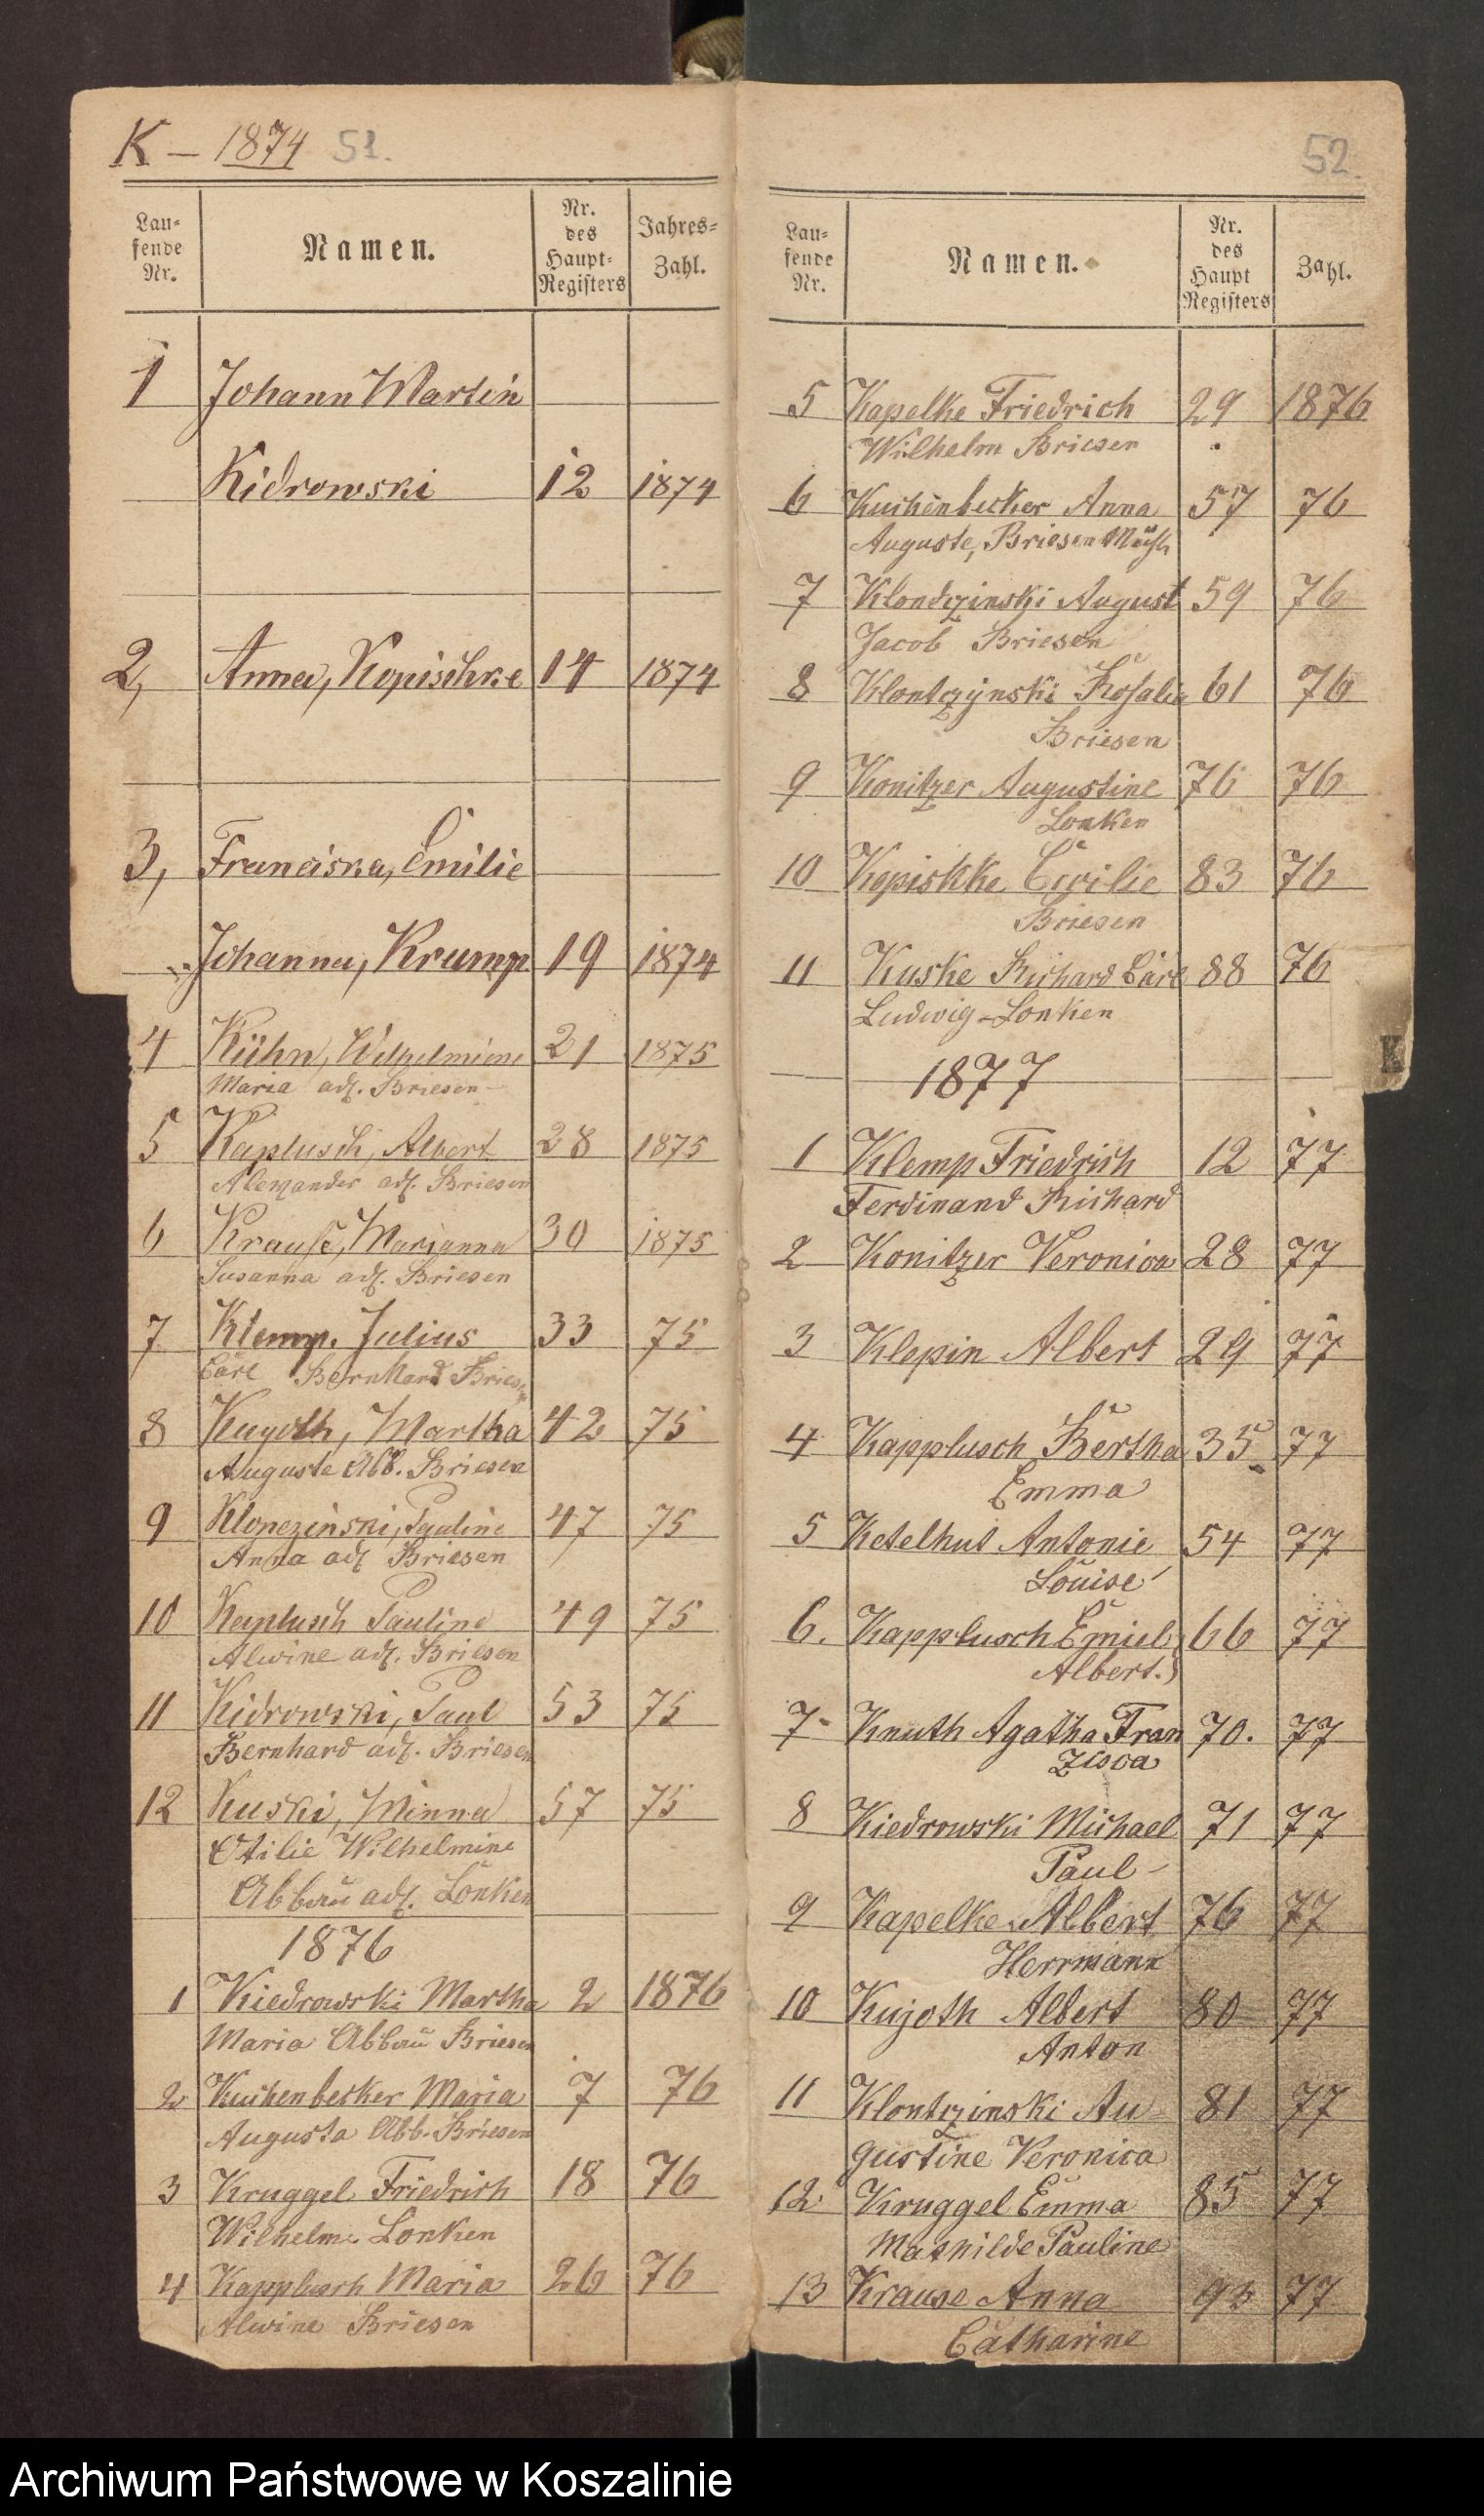 K – 1874 51.
Laufende Nr. Namen. Nr. des Haupt-Registers Jahres-Zahl.
1 Johann Martin
Kidrowski 12 1874
2, Anna, Kopischke 14 1874
3, Franciska, Emilie
Johanna, Krump 19 1874
4 Kühn, Wilhelmine 21 1875
Maria adl. Briesen
5 Kaplusch, Albert 28 1875
Alexander adl. Briesen
6 Krauße, Marianna 30 1875
Susanna adl. Briesen
7 Klemp. Julius 33 75
Carl Bernhard Briesen
8 Kugoth, Martha 42 75
Auguste Abb. Briesen
9 Klonczinski, Pauline 47 75
Anna adl Briesen
10 Kaplusch Pauline 49 75
Alwine adl. Briesen
11 Kidrowski, Paul 53 75
Bernhard adl. Briesen
12 Kuski, Minna 57 75
Otilie Wilhelmine
Abbau adl. Lonken
1876
1 Kiedrowski Martha 2 1876
Maria Abbau Briesen
2 Kuchenbecker Maria 7 76
Augusta Abb. Briesen
3 Kruggel Friedrich 18 76
Wilhelm Lonken
4 Kapplusch Maria 26 76
Alwine Briesen
52.
Laufende Nr. Namen. Nr. des Haupt Registers Zahl.
5 Kapelke Friedrich 29 1876
Wilhelm Briesen
6 Kuchenbecker Anna 57 76
Auguste, Briesen
7 Klondzinski August 59 76
Jacob Briesen
8 Klontzynski Rosalia 61 76
Briesen
9 Konitzer Augustine 76 76
Lonken
10 Kopiskke Cecilie 83 76
Briesen
11 Kuske Richard Carl 88 76
Ludwig – Lonken
K
1877
1 Klemp Friedrich 12 77
Ferdinand Richard
2 Konitzer Veronica 28 77
3 Klepin Albert 29 77
4 Kapplusch Bertha 35 77
Emma
5 Ketelhut Antonie 54 77
Louise
6. Kapplusch Emiel 66 77
Albert.
7 Knuth Agatha Fran 70. 77
zisca
8 Kiedrowski Michael 71 77
Paul
9 Kapelke Albert 76 77
Herrmann
10 Kujoth Albert 80 77
Anton
11 Klontzinski Au- 81 77
gustine Veronica
12 Kruggel Emma 85 77
Mathilde Pauline
13 Krause Anna 93 77
Catharine
Archiwum Państwowe w Koszalinie